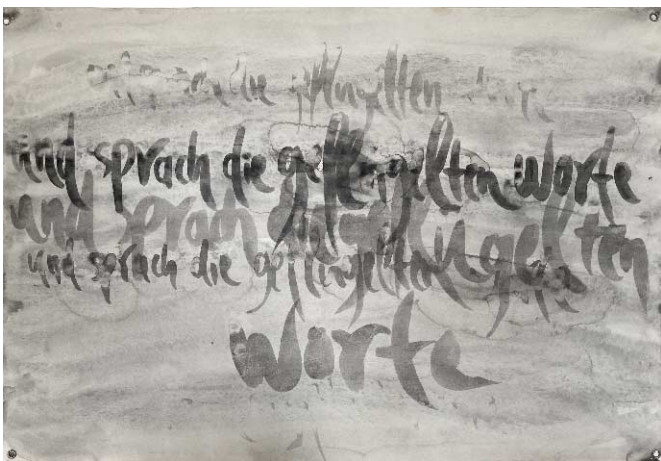 die geflügelten
und sprach die geflügelten Worte
und sprach die geflügelten
und sprach die geflügelten
Worte